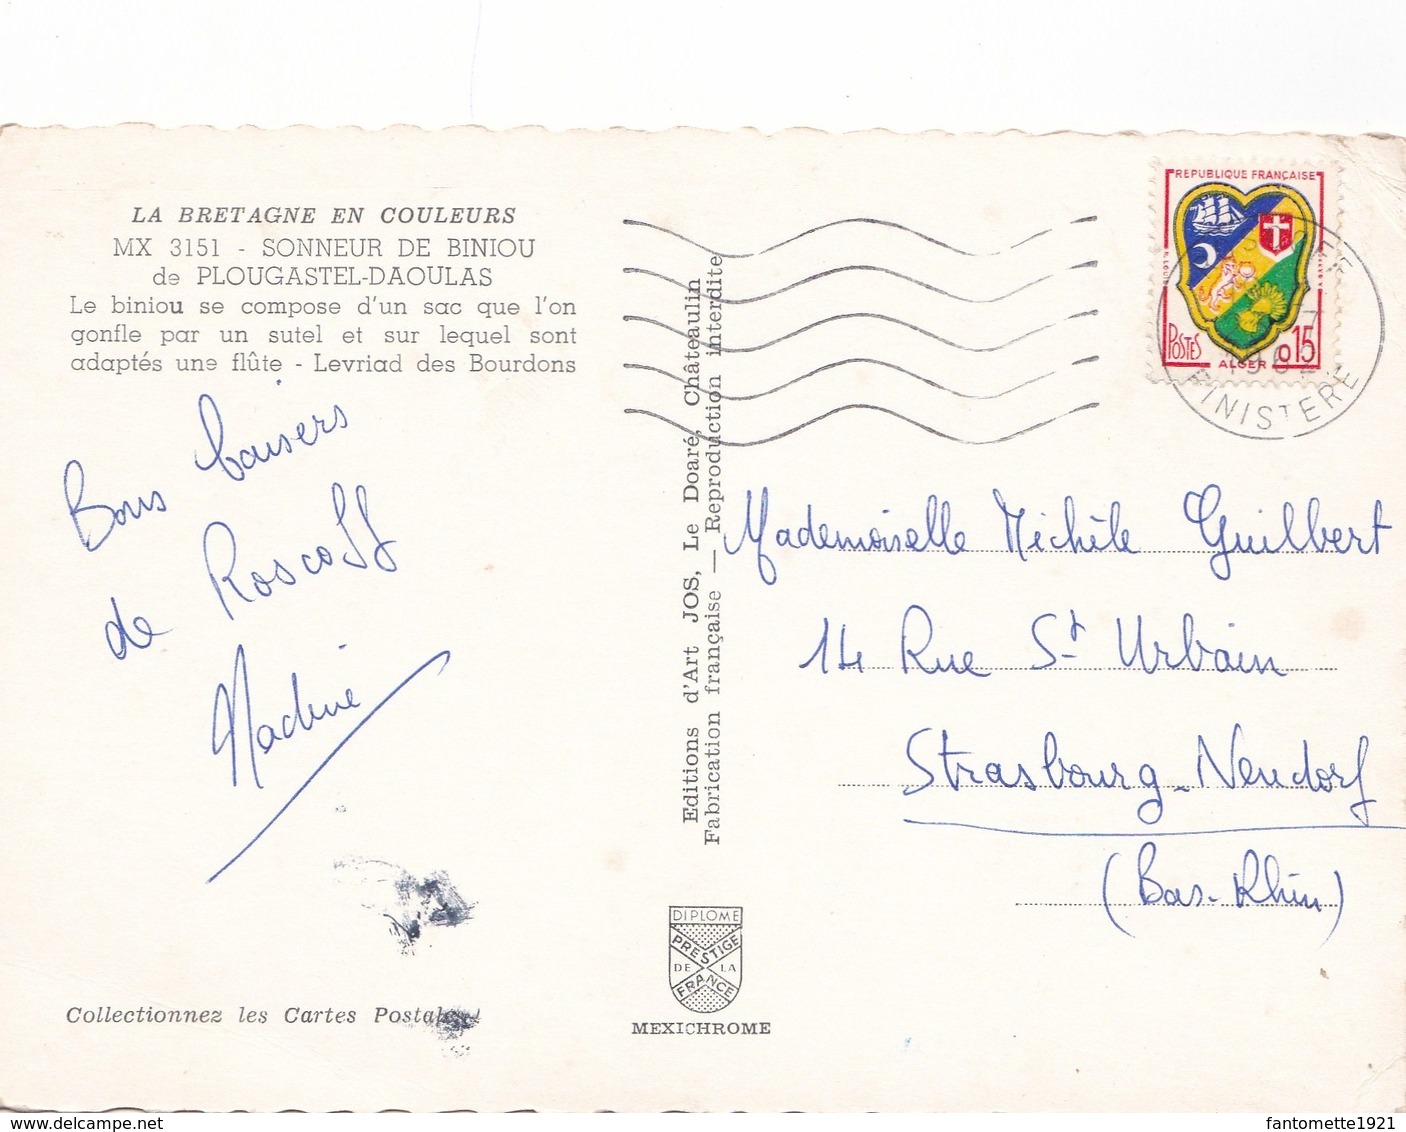 LA BRETAGNE EN COULEURS
MX 3151 - SONNEUR DE BINIOU
de PLOUGASTEL-DAOULAS
Le biniou se compose d'un sac que l'on
gonfle par un sutel et sur lequel sont
adaptés une flûte - Levriad des Bourdons
Bons baisers
de Roscoff
Nadine
Collectionnez les Cartes Postales
Editions d'Art JOS, Le Doaré, Châteaulin
Fabrication française — Reproduction interdite
DIPLOME
PRESTIGE
DE LA
FRANCE
MEXICHROME
REPUBLIQUE FRANÇAISE
POSTES
ALGER
0,15
1962
FINISTERE
Mademoiselle Michèle Guilbert
14 Rue St Urbain
Strasbourg-Neudorf
(Bas-Rhin)
www.delcampe.net
fantomette1921